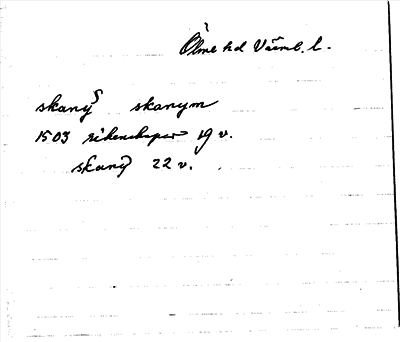 Ölme hd Värml. l.
skanyͦ skanym
1503 räkenskaper 19 v.
skany 22 v.